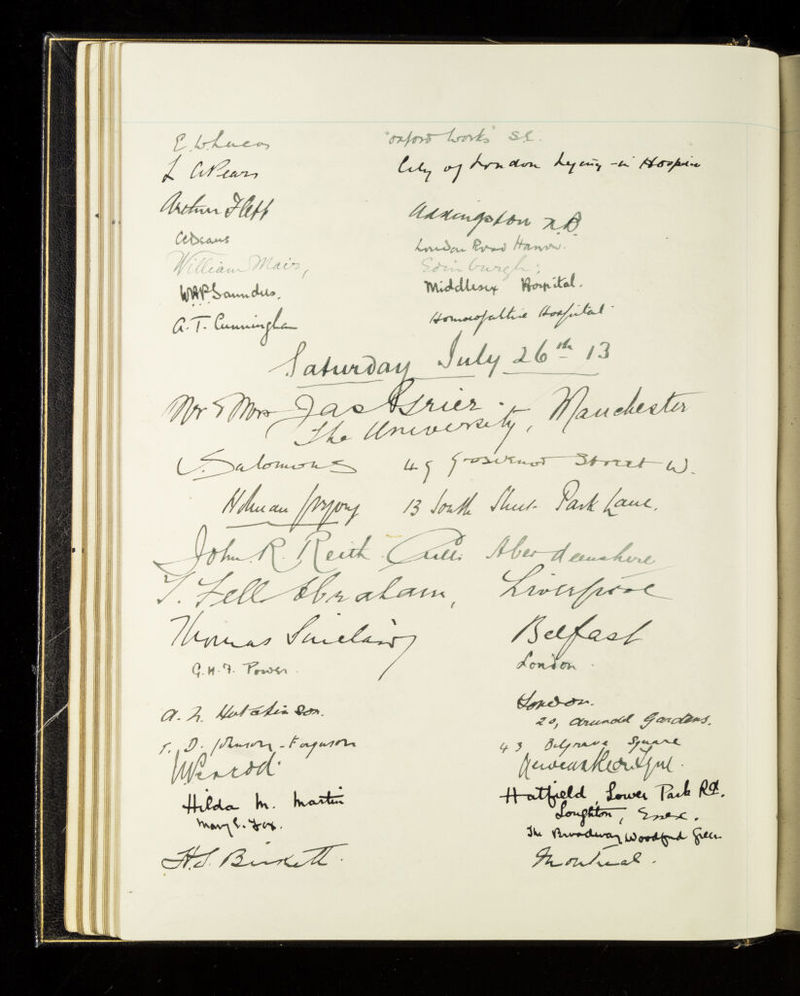 E. W. Lucas "Oxford Works" S.E.
L. C. W. Pears City of London Lying-in Hospital
Arthur Addingston N.B.
C. E. Deans London Road Harrow.
William Mair, Edinburgh;
W.H.P. Saunders. Middlesex Hospital.
A. T. Cunningham Homoeopathic Hospital
Saturday July 26th 13
Mr & Mrs Jas Grier.
The University, Manchester
V. Salomons 49 Grosvenor Street W.
13 South Street Park Lane.
John R. Reith Aberdeenshire
T. Fell Abraham, Liverpool
Thomas Sinclair Belfast
G. H. F. Power. London.
A. Hutchinson. London.
20, Arundel Gardens.
T. D. Johnson-Ferguson 43 Belgrave Square
Newcastle on Tyne.
Hilda M. Martin Hatfield, Lower Park Rd.
Loughton, Essex.
Mary S. Fox. The Broadway Woodford Green
H. S. Birkett. Montreal.